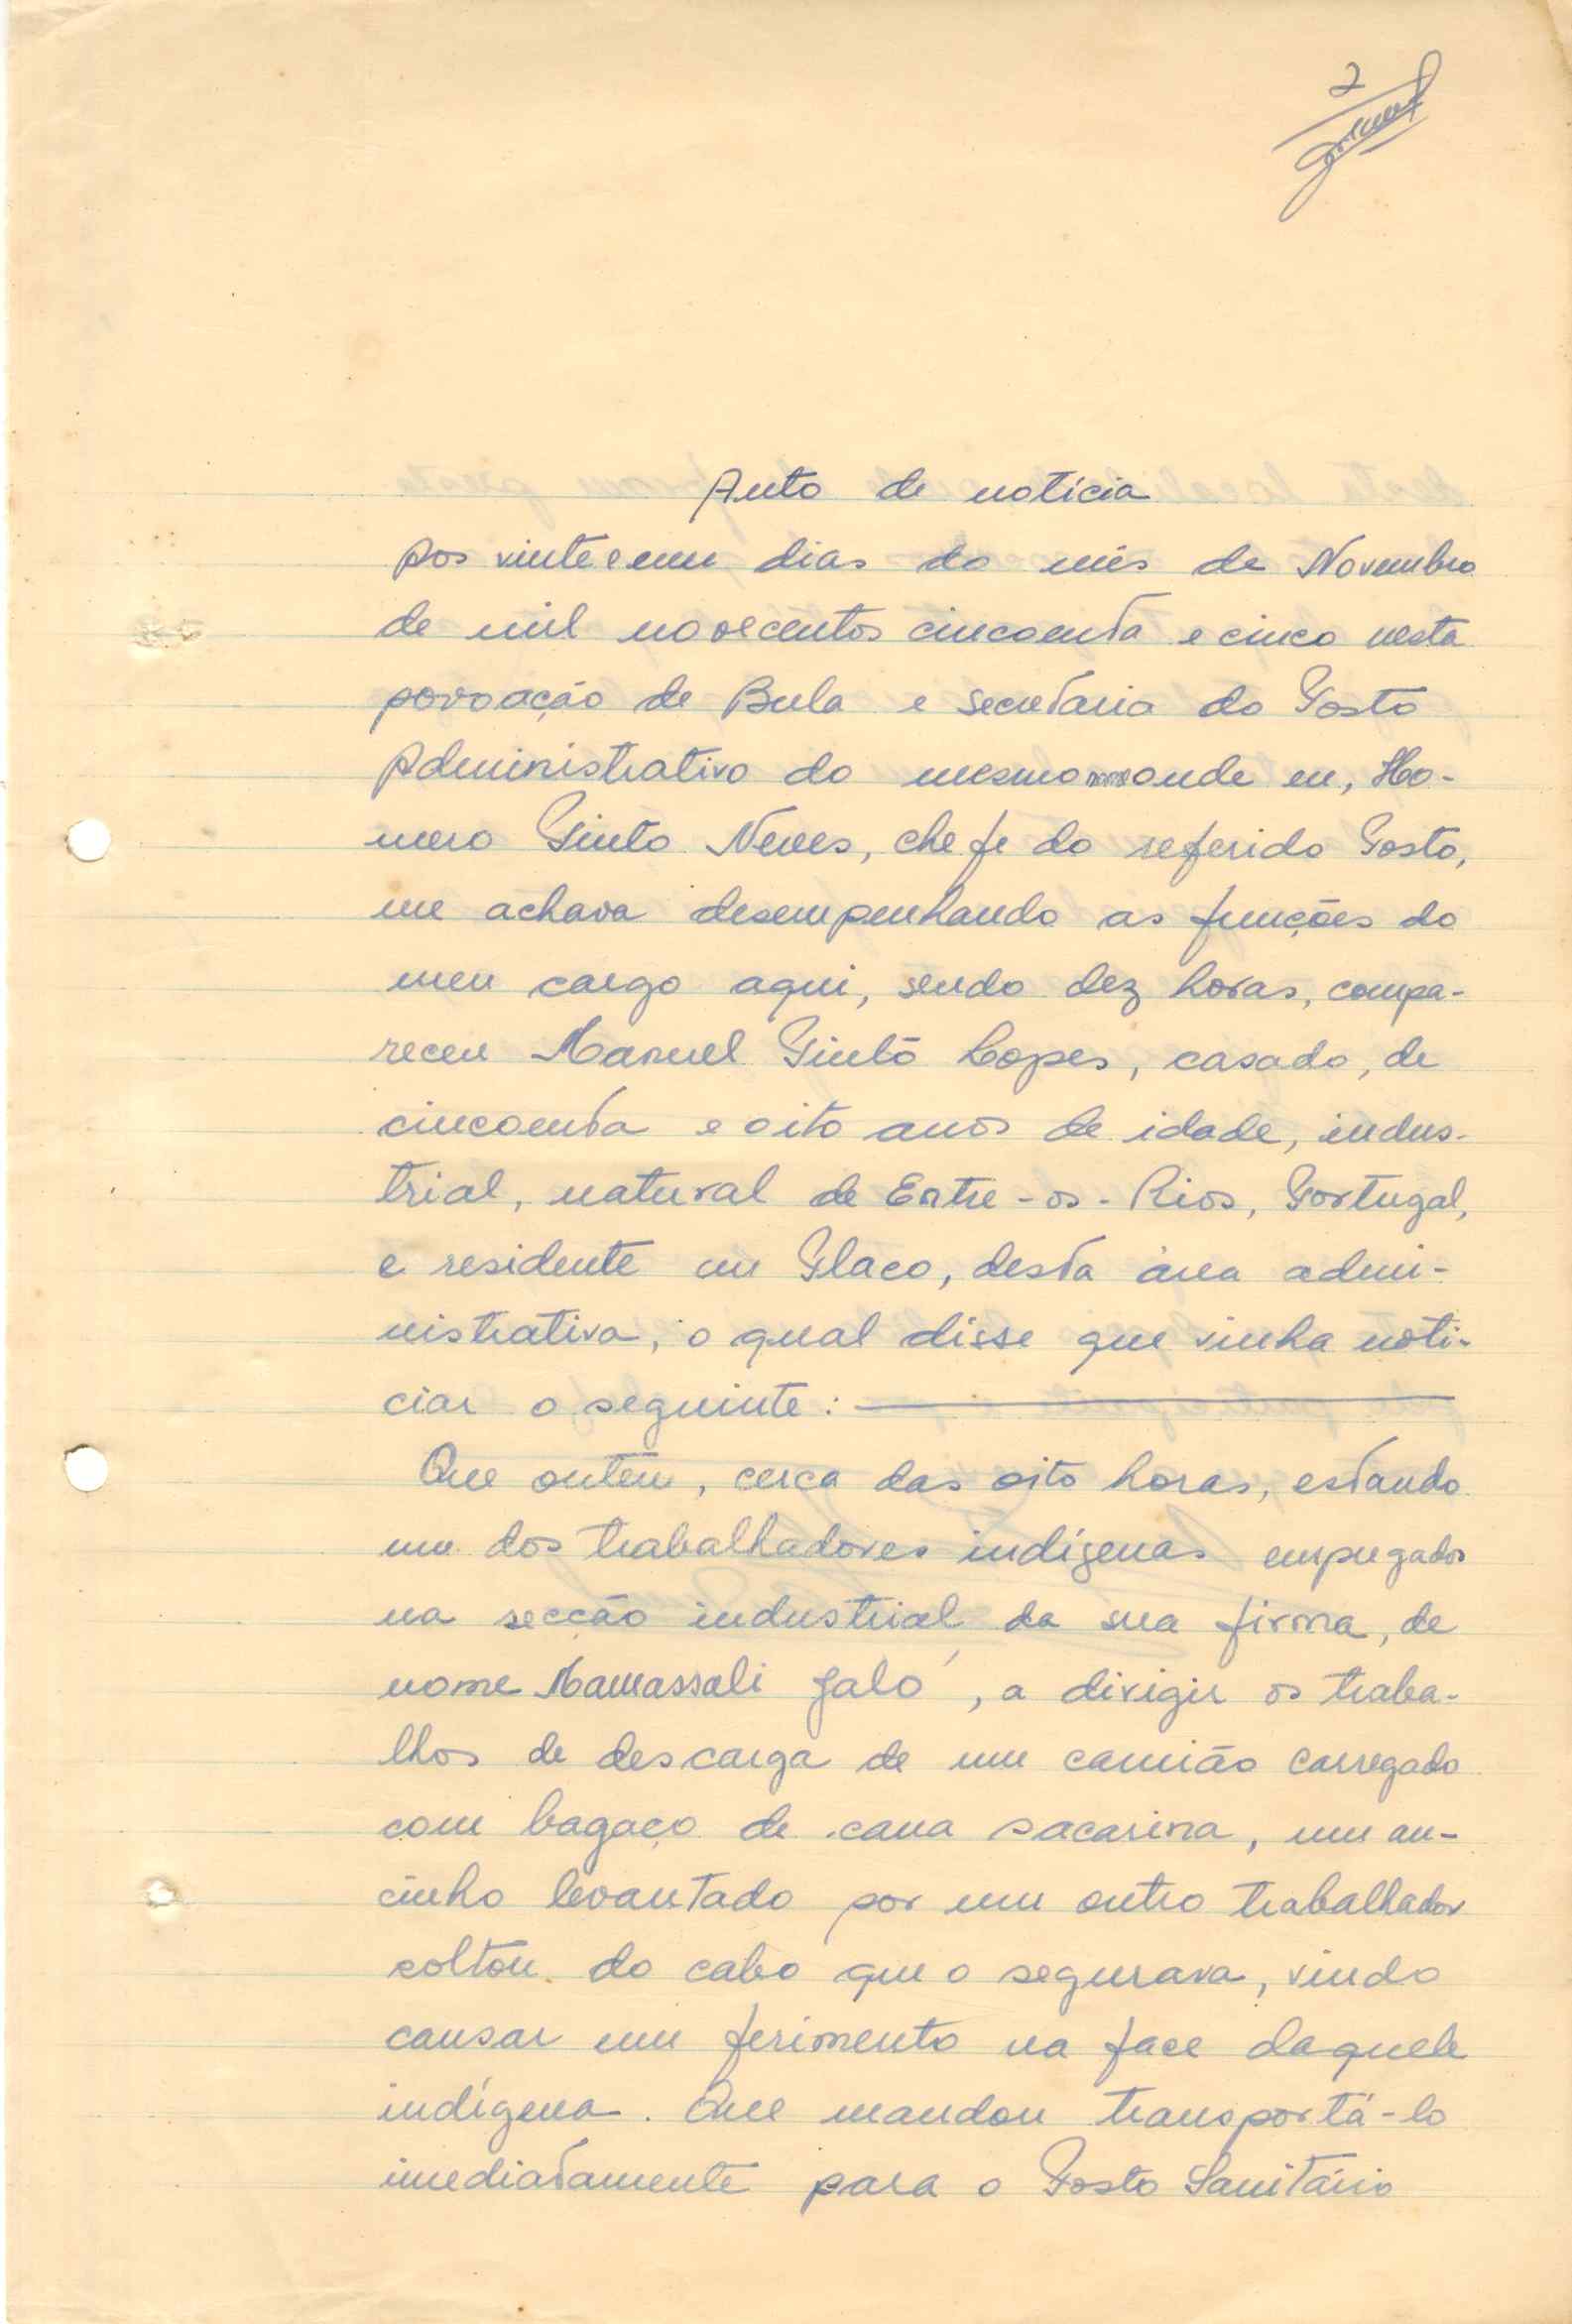 2
Auto de notícia
Aos vinte e um dias do mês de Novembro
de mil novecentos cincoenta e cinco nesta
povoação de Bula e secretaria do Posto
Administrativo do mesmo onde eu, Ho-
mero Pinto Neves, chefe do referido Posto,
me achava desempenhando as funções do
meu cargo aqui, sendo dez horas, compa-
receu Manuel Pinto Lopes, casado, de
cincoenta e oito anos de idade, indus-
trial, natural de Entre-os-Rios, Portugal,
e residente em Placo, desta área admi-
nistrativa, o qual disse que vinha noti-
ciar o seguinte:
Que ontem, cerca das oito horas, estando
um dos trabalhadores indígenas empregados
na secção industrial da sua firma, de
nome Mamassali Jaló, a dirigir os traba-
lhos de descarga de um camião carregado
com bagaço de cana sacarina, um an-
cinho levantado por um outro trabalhador
soltou do cabo que o segurava, vindo
causar um ferimento na face daquele
indígena. Que mandou transportá-lo
imediatamente para o Posto Sanitário